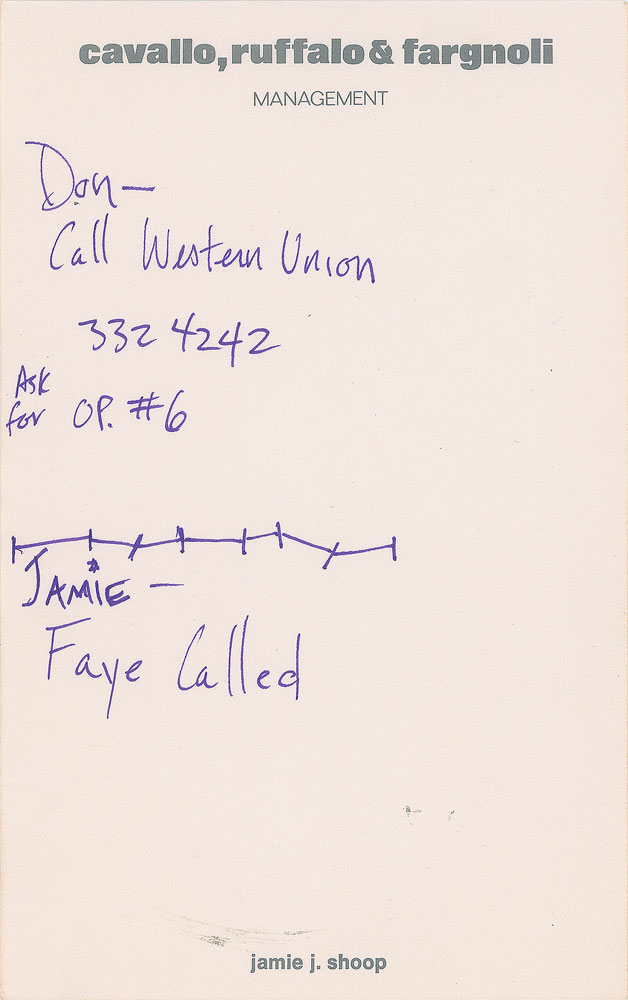 cavallo, ruffalo & fargnoli
MANAGEMENT
Don—
Call Western Union
332 4242
Ask
for OP. #6
JAMiE —
Faye Called
jamie j. shoop